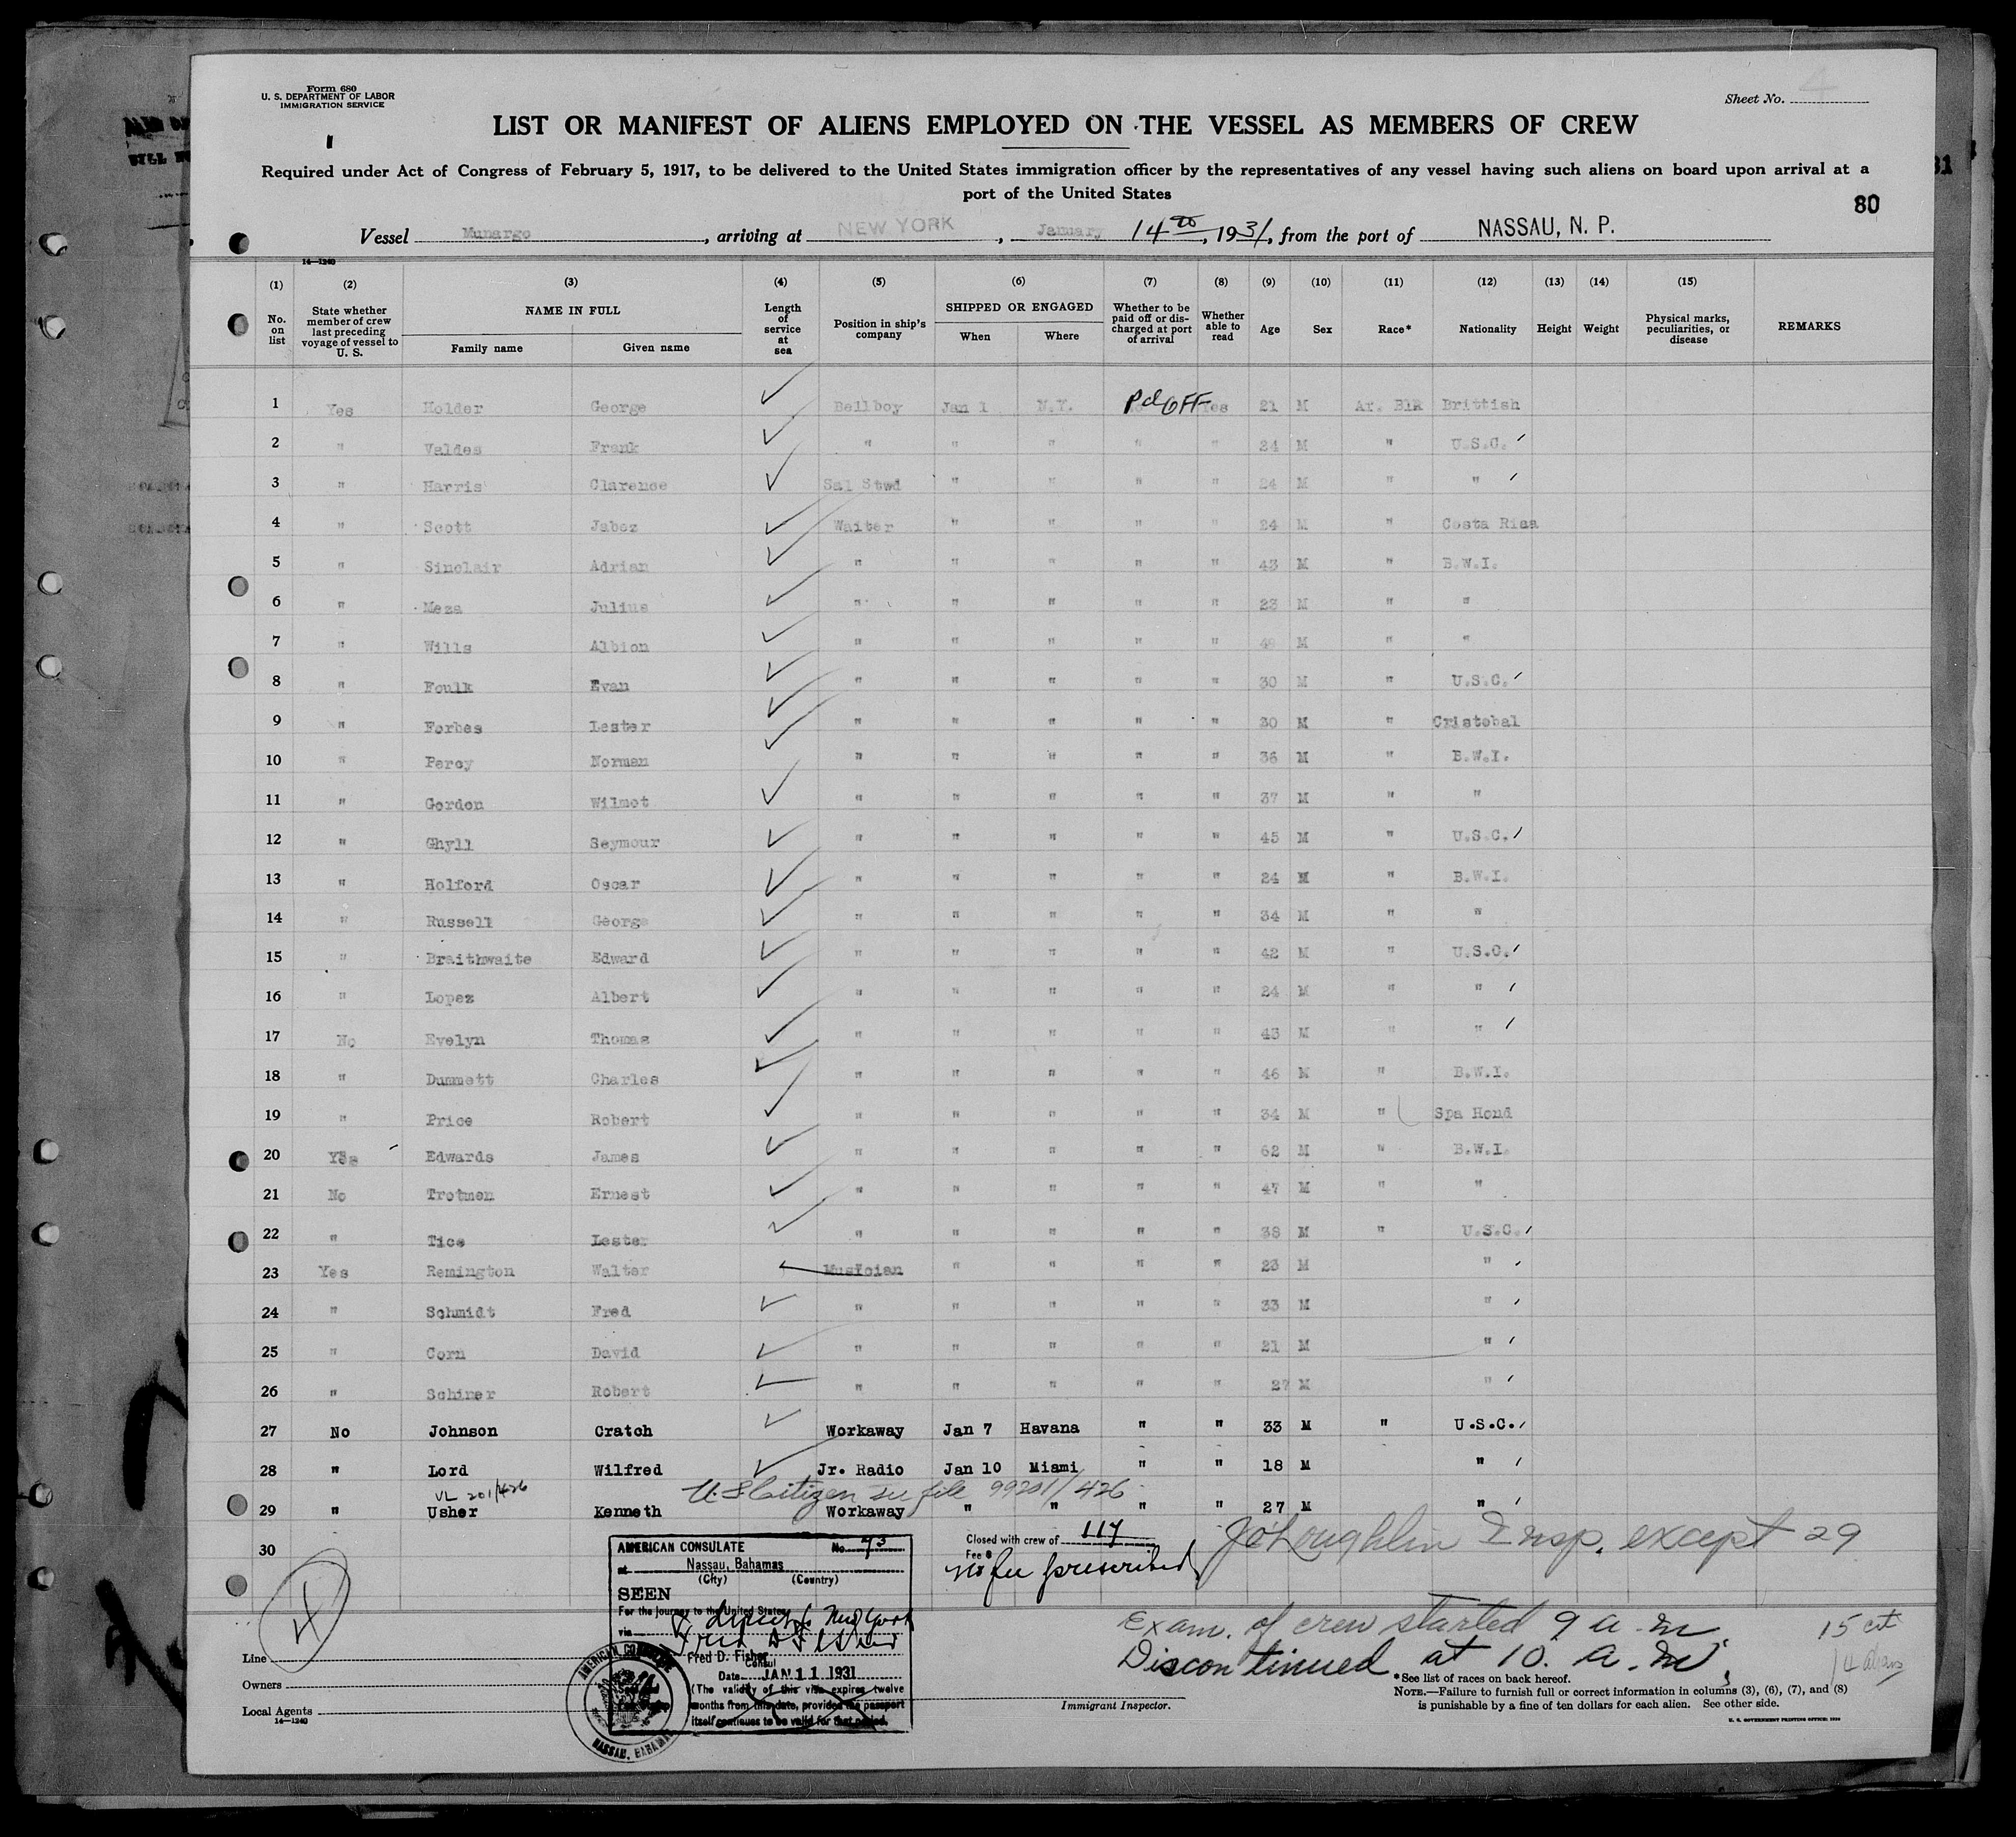 Form 680
U. S. DEPARTMENT OF LABOR
IMMIGRATION SERVICE
Sheet No. 4
LIST OR MANIFEST OF ALIENS EMPLOYED ON THE VESSEL AS MEMBERS OF CREW
Required under Act of Congress of February 5, 1917, to be delivered to the United States immigration officer by the representatives of any vessel having such aliens on board upon arrival at a
port of the United States
80
Vessel Munargo, arriving at NEW YORK, January 14th, 1931, from the port of NASSAU, N. P.
14—1240
(1) (2) (3) (4) (5) (6) (7) (8) (9) (10) (11) (12) (13) (14) (15)
No. on list State whether member of crew last preceding voyage of vessel to U. S. NAME IN FULL Family name Given name Length of service at sea Position in ship's company SHIPPED OR ENGAGED When Where Whether to be paid off or discharged at port of arrival Whether able to read Age Sex Race* Nationality Height Weight Physical marks, peculiarities, or disease REMARKS
1 Yes Holder George Bellboy Jan 1 N.Y. Pd OFF Yes 21 M Af. Blk Brittish
2 " Valdes Frank " " " " " 24 M " U.S.C.
3 " Harris Clarence Sal Stwd " " " " 24 M " "
4 " Scott Jabez Waiter " " " " 24 M " Costa Rica
5 " Sinclair Adrian " " " " " 43 M " B.W.I.
6 " Meza Julius " " " " " 23 M " "
7 " Wills Albion " " " " " 48 M " "
8 " Foulk Evan " " " " " 30 M " U.S.C.
9 " Forbes Lester " " " " " 30 M " Cristobal
10 " Percy Norman " " " " " 36 M " B.W.I.
11 " Gordon Wilmot " " " " " 37 M " "
12 " Ghyll Seymour " " " " " 45 M " U.S.C.
13 " Holford Oscar " " " " " 24 M " B.W.I.
14 " Russell George " " " " " 34 M " "
15 " Braithwaite Edward " " " " " 42 M " U.S.C.
16 " Lopez Albert " " " " " 24 M " "
17 No Evelyn Thomas " " " " " 43 M " "
18 " Dummett Charles " " " " " 46 M " B.W.I.
19 " Price Robert " " " " " 34 M " Spa Hond
20 Yes Edwards James " " " " " 62 M " B.W.I.
21 No Trotmen Ernest " " " " " 47 M " "
22 " Tice Lester " " " " " 38 M " U.S.C.
23 Yes Remington Walter Musician " " " " 23 M "
24 " Schmidt Fred " " " " " 33 M "
25 " Corn David " " " " " 21 M "
26 " Schiner Robert " " " " " 27 M "
27 No Johnson Cratch Workaway Jan 7 Havana " " 33 M " U.S.C.
28 " Lord Wilfred Jr. Radio Jan 10 Miami " " 18 M "
VL 201/426 U.S. Citizen see file 99201/426
29 " Usher Kenneth Workaway " " " " 27 M "
30
J O'Loughlin Insp. except 29
Closed with crew of 117
Fee $
no fee prescribed
AMERICAN CONSULATE No. 73
at Nassau, Bahamas
(City) (Country)
SEEN
For the journey to the United States
via direct to New York
Fred D. Fisher
Fred D. Fisher
Consul
Date JAN 11 1931
(The validity of this visa expires twelve
months from this date, provided the passport
itself continues to be valid for that period.
AMERICAN CONSULATE
NASSAU, BAHAMAS
4
Exam. of crew started 9 a. m.
Discontinued at 10. a. m.
15 cit
14 aliens
Line
Owners
Local Agents
14—1240
Immigrant Inspector.
*See list of races on back hereof.
NOTE.—Failure to furnish full or correct information in columns (3), (6), (7), and (8)
is punishable by a fine of ten dollars for each alien. See other side.
U. S. GOVERNMENT PRINTING OFFICE: 1930